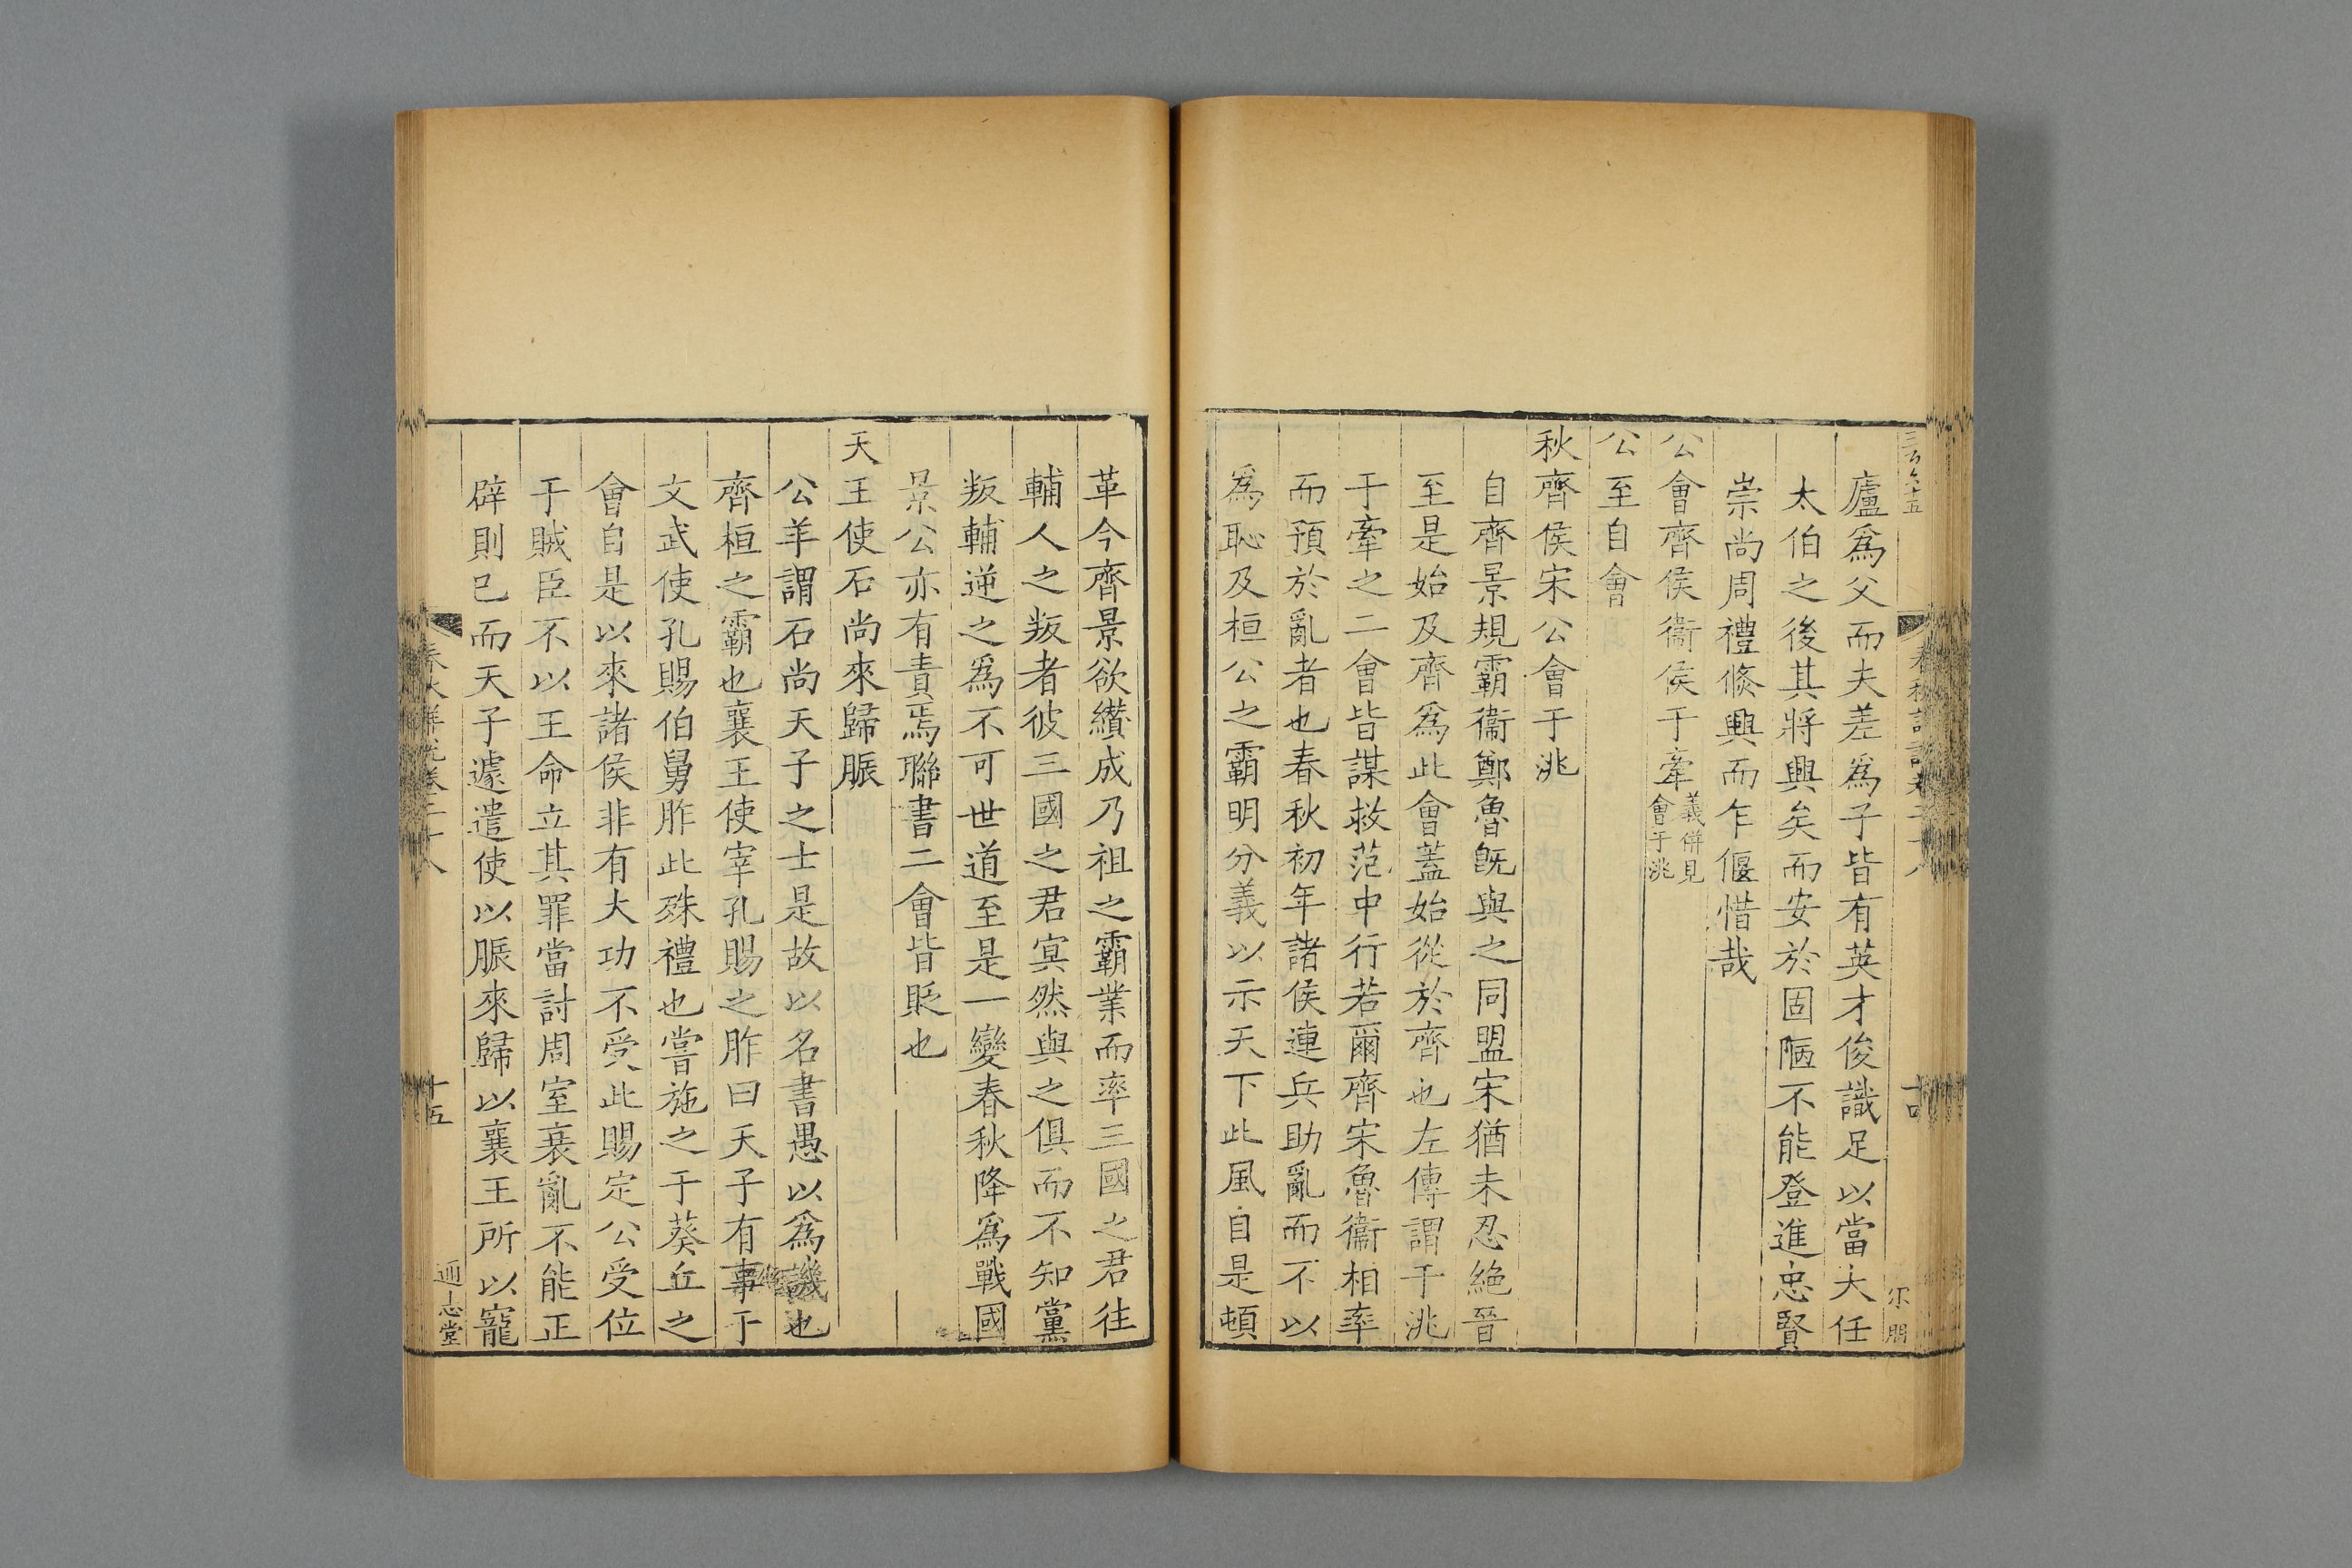 三百六十五
廬爲父而夫差爲子皆有英才俊識足以當大任
太伯之後其將興矣而安於固陋不能登進忠賢
崇尚周禮倐興而乍偃惜哉
公會齊侯衞侯于牽義併見會于洮
公至自會
秋齊侯宋公會于洮
自齊景規霸衞鄭魯旣與之同盟宋猶未忍絶晉
至是始及齊爲此會蓋始從於齊也左傳謂于洮
于牽之二會皆謀救范中行若爾齊宋魯衞相率
而預於亂者也春秋初年諸侯連兵助亂而不以
爲恥及桓公之霸明分義以示天下此風自是頓
革今齊景欲纉成乃祖之霸業而率三國之君往
輔人之叛者彼三國之君冥然與之俱而不知黨
叛輔逆之爲不可世道至是一變春秋降爲戰國
景公亦有責焉聯書二會皆貶也
天王使石尚來歸脤
公羊謂石尚天子之士是故以名書愚以爲譏也
齊桓之霸也襄王使宰孔賜之胙曰天子有事于
文武使孔賜伯舅胙此殊禮也嘗施之于葵丘之
會自是以來諸侯非有大功不受此賜定公受位
于賊臣不以王命立其罪當討周室衰亂不能正
辟則已而天子遽遣使以脤來歸以襄王所以寵
春秋詳説卷二十八
十五
通志堂